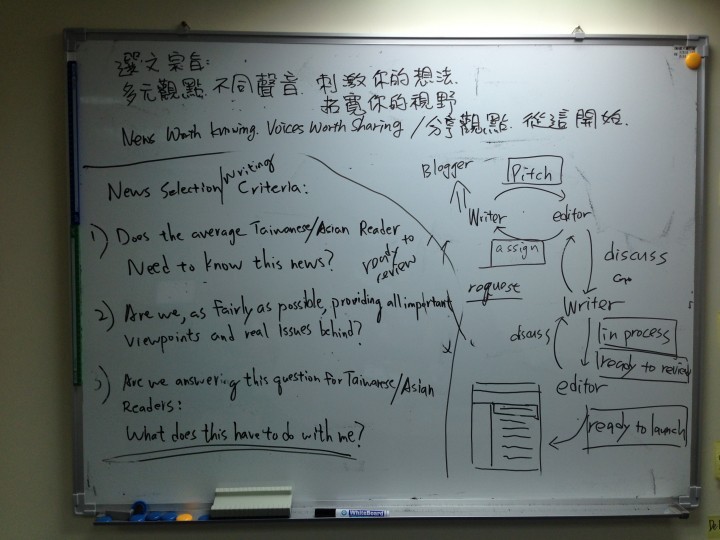 選文宗旨:
多元觀點.不同聲音.刺激你的想法.
拓寬你的視野
News Worth knowing. Voices Worth Sharing / 分享觀點.從這開始.
News Selection/Writing Criteria:
1) Does the average Taiwanese/Asian Reader
Need to know this news?
ready to
review
2) Are we, as fairly as possible, providing all important
viewpoints and real Issues behind?
3) Are we answering this question for Taiwanese/Asian
Readers:
What does this have to do with me?
Blogger
Pitch
Writer
editor
assign
request
discuss
Writer
discuss
in process
ready to review
editor
ready to launch
WhiteBoard